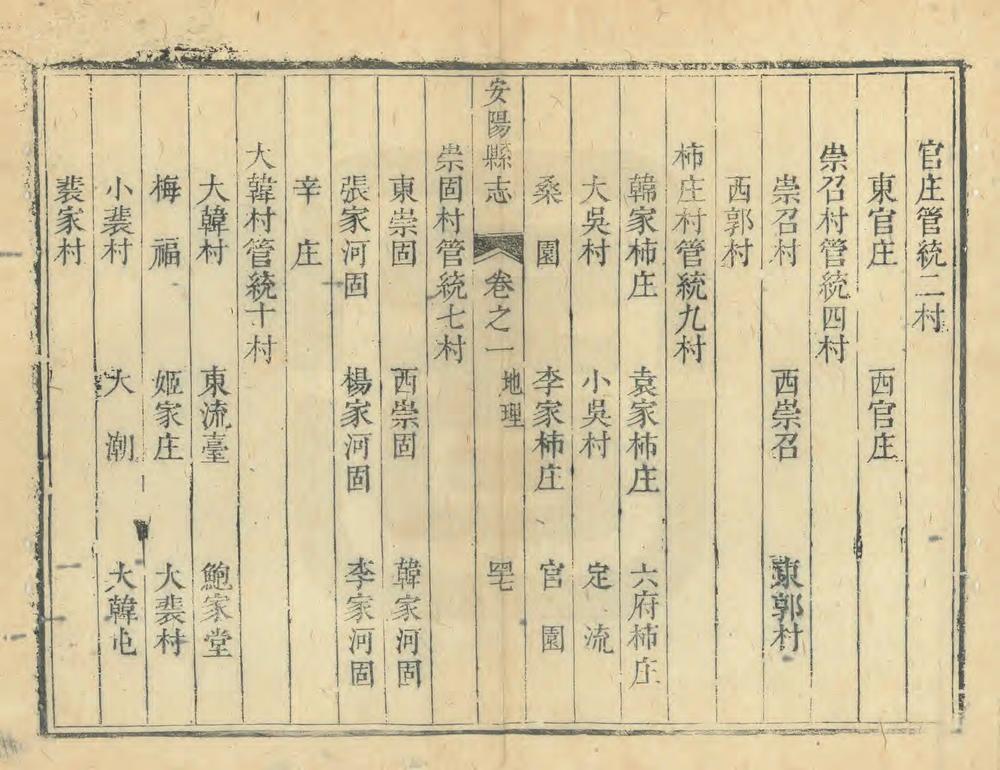 官庄管統二村
東官庄 西官庄
崇召村管統四村
崇召村 西崇召 東郭村
西郭村
柿庄村管統九村
韓家柿庄 袁家柿庄 六府柿庄
大吳村 小吳村 定流
桑園 李家柿庄 官園
安陽縣志 卷之一 地理 四七
崇固村管統七村
東崇固 西崇固 韓家河固
張家河固 楊家河固 李家河固
辛庄
大韓村管統十村
大韓村 東流臺 鮑家堂
梅福 姬家庄 大裴村
小裴村 大潮 大韓屯
裴家村